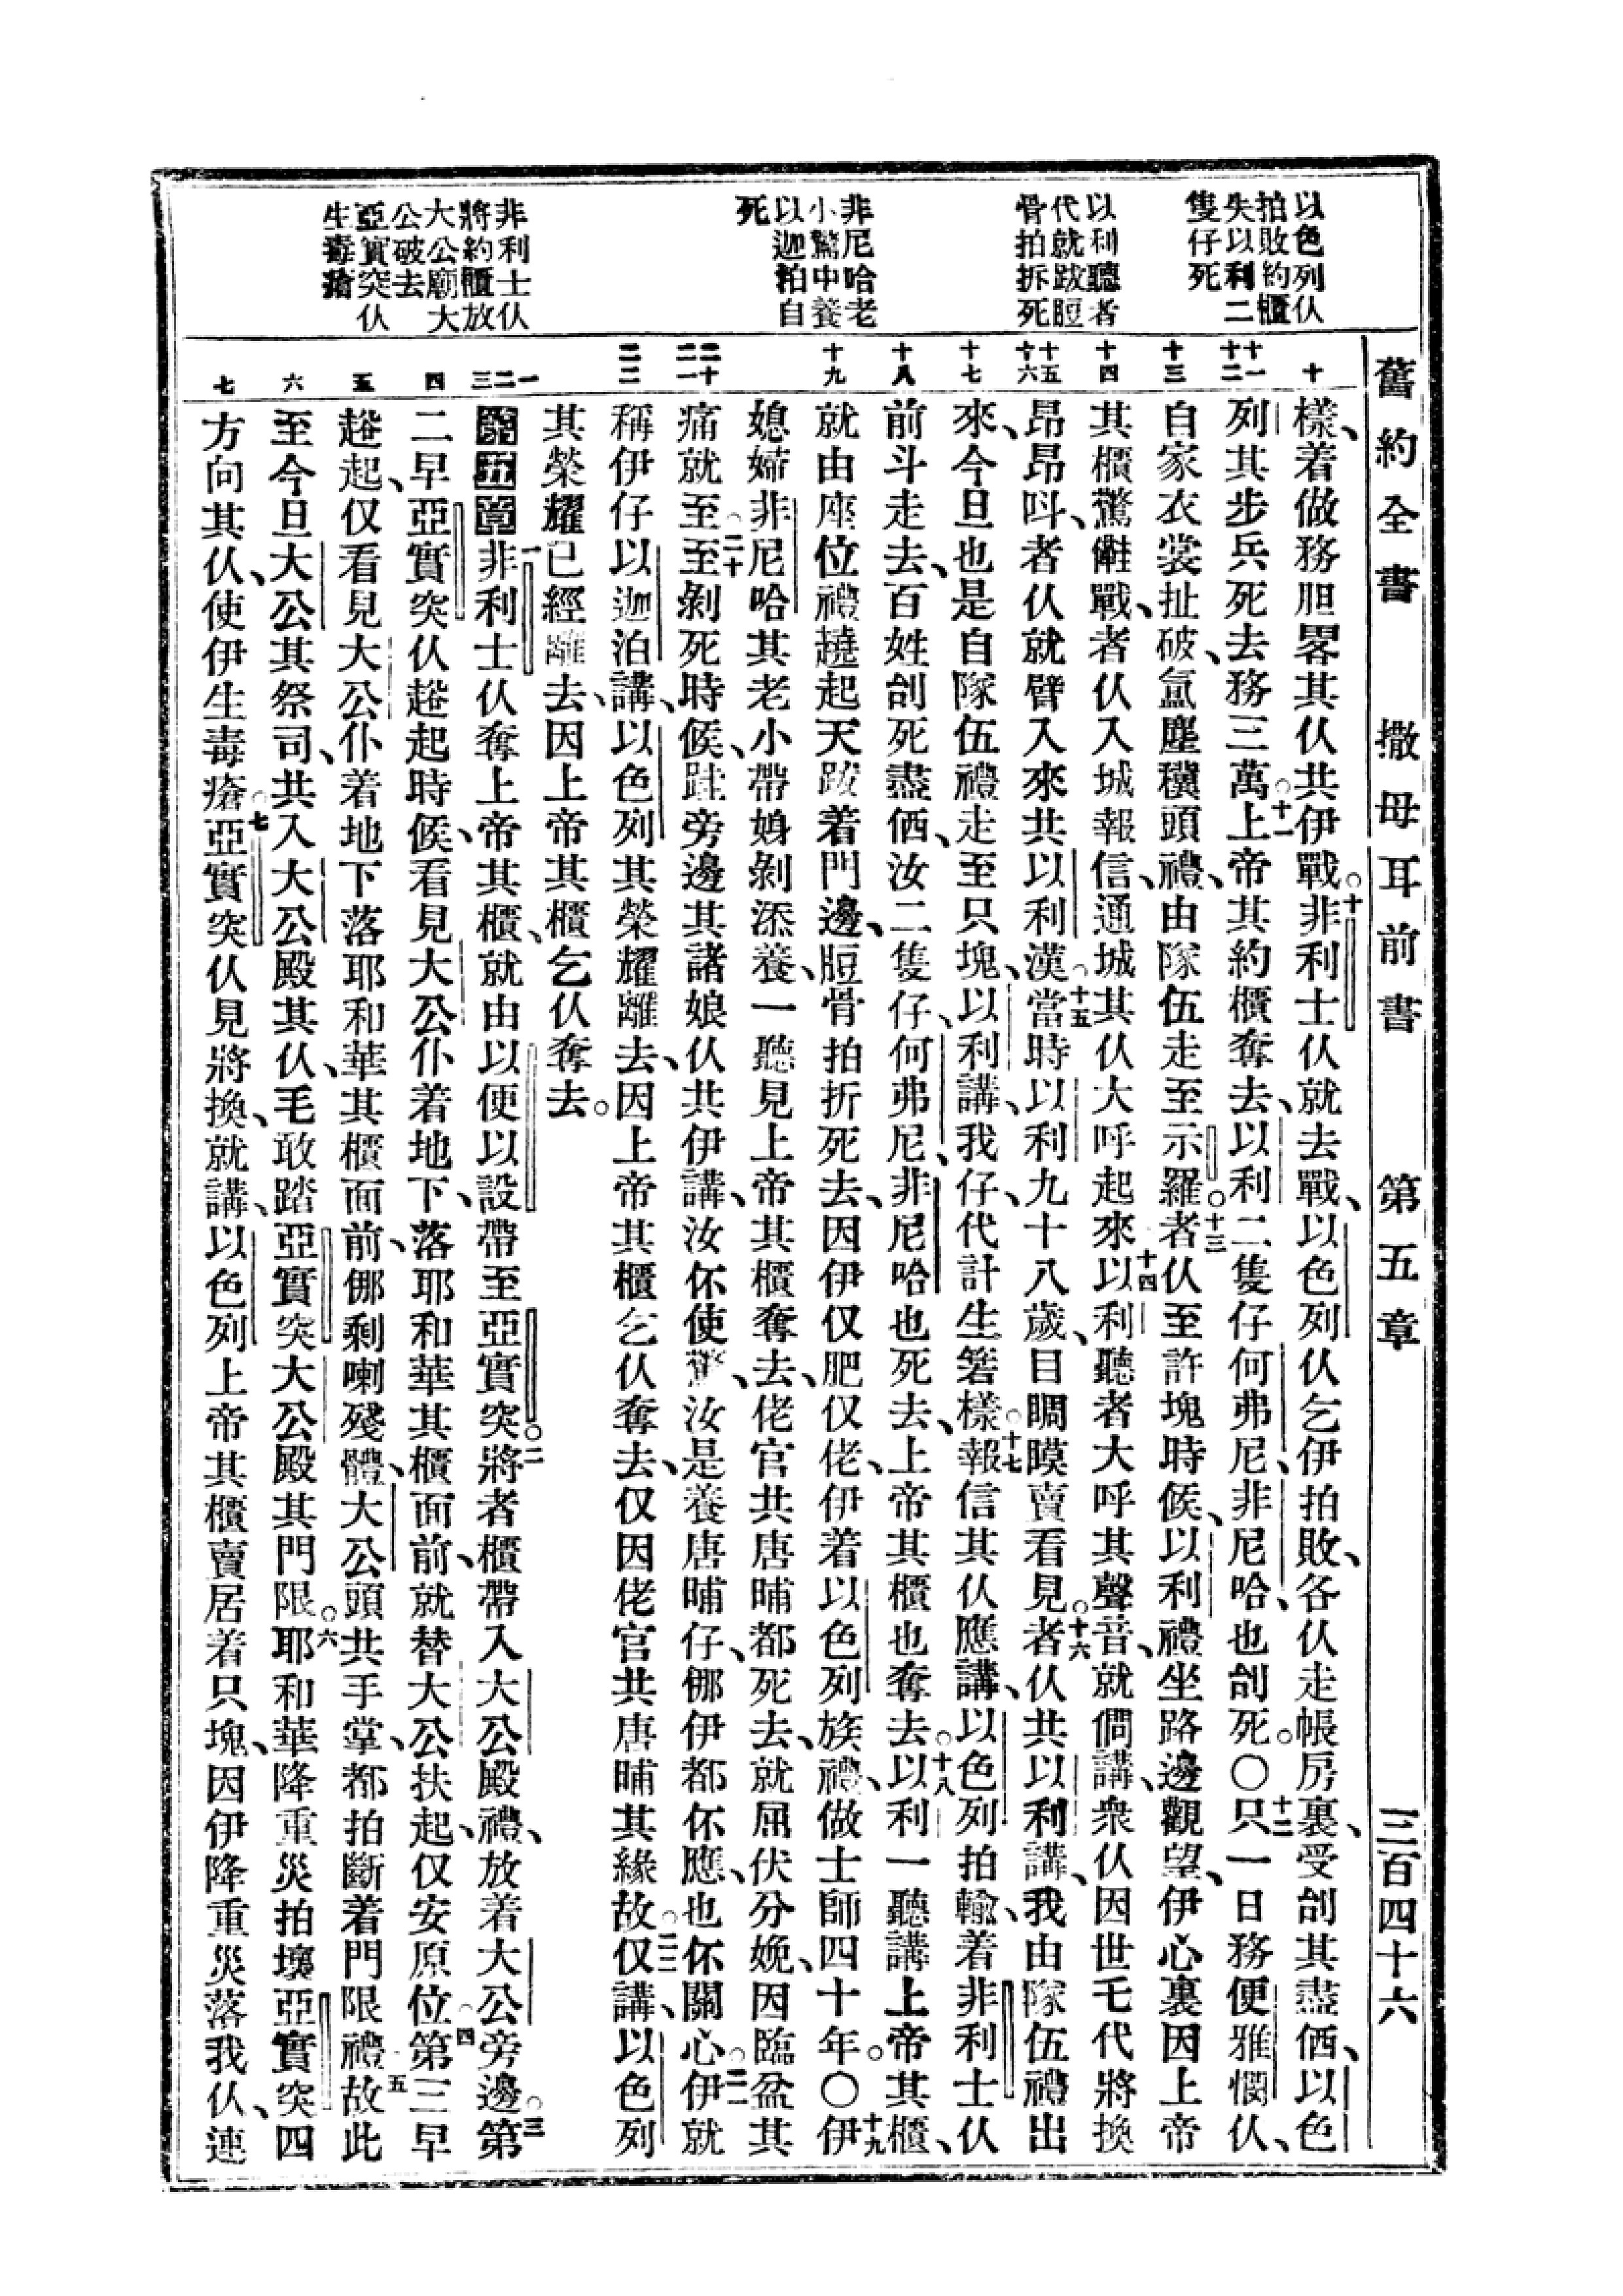 舊約全書 撒母耳前書 第五章 三百四十六
以色列仈
拍敗約櫃
失以利二
隻仔死
以利聽者
代就跋脰
骨拍拆死
非尼哈老
小驚中養
以迦拍自
死
非利士仈
將約櫃放
大公廟大
公破去
亞實突仈
生毒瘡
十
十一
十二
十三
十四
十五
十六
十七
十八
十九
二十
二一
二二
一
二
三
四
五
六
七
樣、着做務胆畧其仈共伊戰。十非利士仈就去戰、以色列仈乞伊拍敗、各仈走帳房裏、受刣其盡僫、以色
列其步兵死去務三萬。十一上帝其約櫃奪去、以利二隻仔何弗尼、非尼哈、也刣死。〇十二只一日務便雅憫仈、
自家衣裳扯破、塵穰頭禮、由隊伍走至示羅。十三者仈至許塊時候、以利禮坐路邊觀望、伊心裏因上帝
其櫃驚戰、者仈入城報信、通城其仈大呼起來十四以利聽者大呼其聲音、就倜講、衆仈因世乇代將換
昂昂呌、者仈就臂入來共以利漢。十五當時以利九十八歲、目睭瞙賣看見。十六者仈共以利講、我由隊伍禮出
來、今旦也是自隊伍禮走至只塊、以利講、我仔、代計生箸樣。十七報信其仈應講、以色列拍輸、着非利士仈
前斗走去、百姓刣死盡僫、汝二隻仔、何弗尼、非尼哈也死去、上帝其櫃也奪去。十八以利一聽講上帝其櫃、
就由座位禮趬起天跋着門邊、脰骨拍折死去、因伊仅肥仅佬、伊着以色列族禮、做士師四十年。〇十九伊
媳婦非尼哈其老小帶娚剝添養、一聽見上帝其櫃奪去、佬官共唐晡都死去、就屈伏分娩、因臨盆其
痛就至。二十至剝死時候、跍旁邊其諸娘仈共伊講、汝伓使驚、汝是養唐晡仔、𠆧伊都伓應、也伓關心。二一伊就
稱伊仔以迦泊講、以色列其榮耀離去、因上帝其櫃乞仈奪去、仅因佬官共唐晡其緣故。二二仅講、以色列
其榮耀已經離去、因上帝其櫃乞仈奪去。
第五章 一非利士仈奪上帝其櫃、就由以便以設帶至亞實突。二將者櫃帶入大公殿禮、放着大公旁邊。三第
二早亞實突仈趖起時候、看見大公仆着地下、落耶和華其櫃面前、就替大公扶起、仅安原位。四第三早
趖起、仅看見大公仆着地下落耶和華其櫃面前、𠆧剩喇殘體、大公頭共手掌、都拍斷着門限禮五故此
至今旦大公其祭司、共入大公殿其仈、乇敢踏亞實突大公殿其門限。六耶和華降重災拍壞亞實突四
方向其仈、使伊生毒瘡。七亞實突仈見將換、就講、以色列上帝其櫃賣居着只塊、因伊降重災落我仈、連